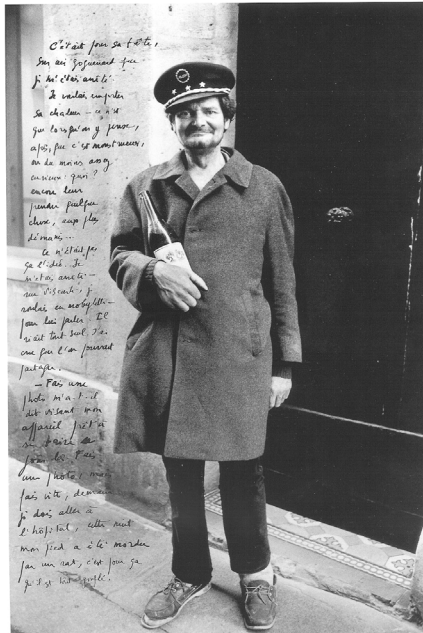 C'était pour sa tête,
son air goguenard que
je m'étais arrêté.
Je voulais emporter
sa chaleur — ce n'est
que lorsqu'on y pense,
après, que c'est monstrueux,
ou du moins assez
curieux : quoi ?
encore leur
prendre quelque
chose, aux plus
démunis...
Ce n'était pas
ça l'idée. Je
m'étais arrêté —
rue Visconti, je
roulais en mobylette —
pour lui parler. Il
riait tout seul. J'ai
cru que l'on pourrait
partager.
— Fais une
photo m'a-t-il
dit visant mon
appareil prêt à
la
Fais
une photo, mais
fais vite, demain
je dois aller à
l'hôpital, cette nuit
mon pied a été mordu
par un rat, c'est pour ça
qu'il est tout gonflé.